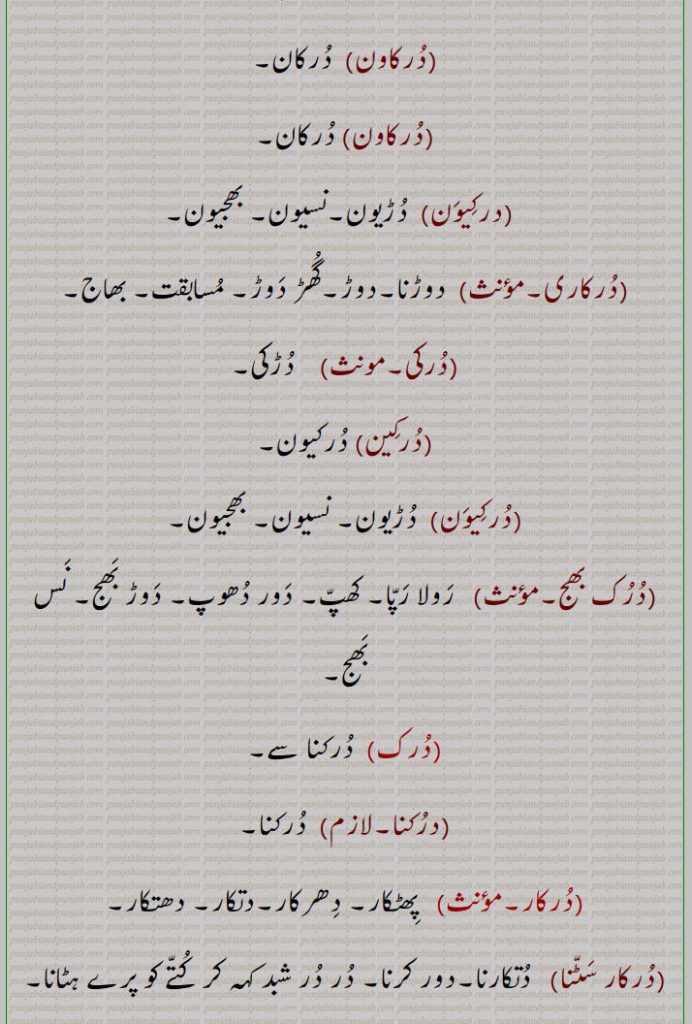 (دُرکاون) دُرکان۔
(دُرکاون) دُرکان۔
(درکِیوَن) دُڑیون۔نسیون۔ بھجیون۔
(دُرکاری۔مؤنث) دوڑنا۔دوڑ۔گُھڑ دَوڑ۔ مُسابقت۔ بھاج۔
(دُرکی۔مونث) دُڑکی۔
(دُرکِین) دُرکیون۔
(دُرکِیوَن) دُڑیون۔ نسیون۔ بھجیون۔
(دُرُک بھج۔مؤنث) رَولا رَپّا۔ کھپّ۔ دَور دُھوپ۔ دَوڑ بَھج۔ نَس
بَھج۔
(دُرک) دُرکنا سے۔
(درُکنا۔لازم) دُرکنا۔
(دُرکار۔مؤنث) پِھٹکار۔ دِھرکار۔دتکار۔ دھتکار۔
(دُرکار سَٹّنا) دُتکارنا۔دور کرنا۔ دُر دُر شبد کہہ کر کُتّے کو پرے ہٹانا۔